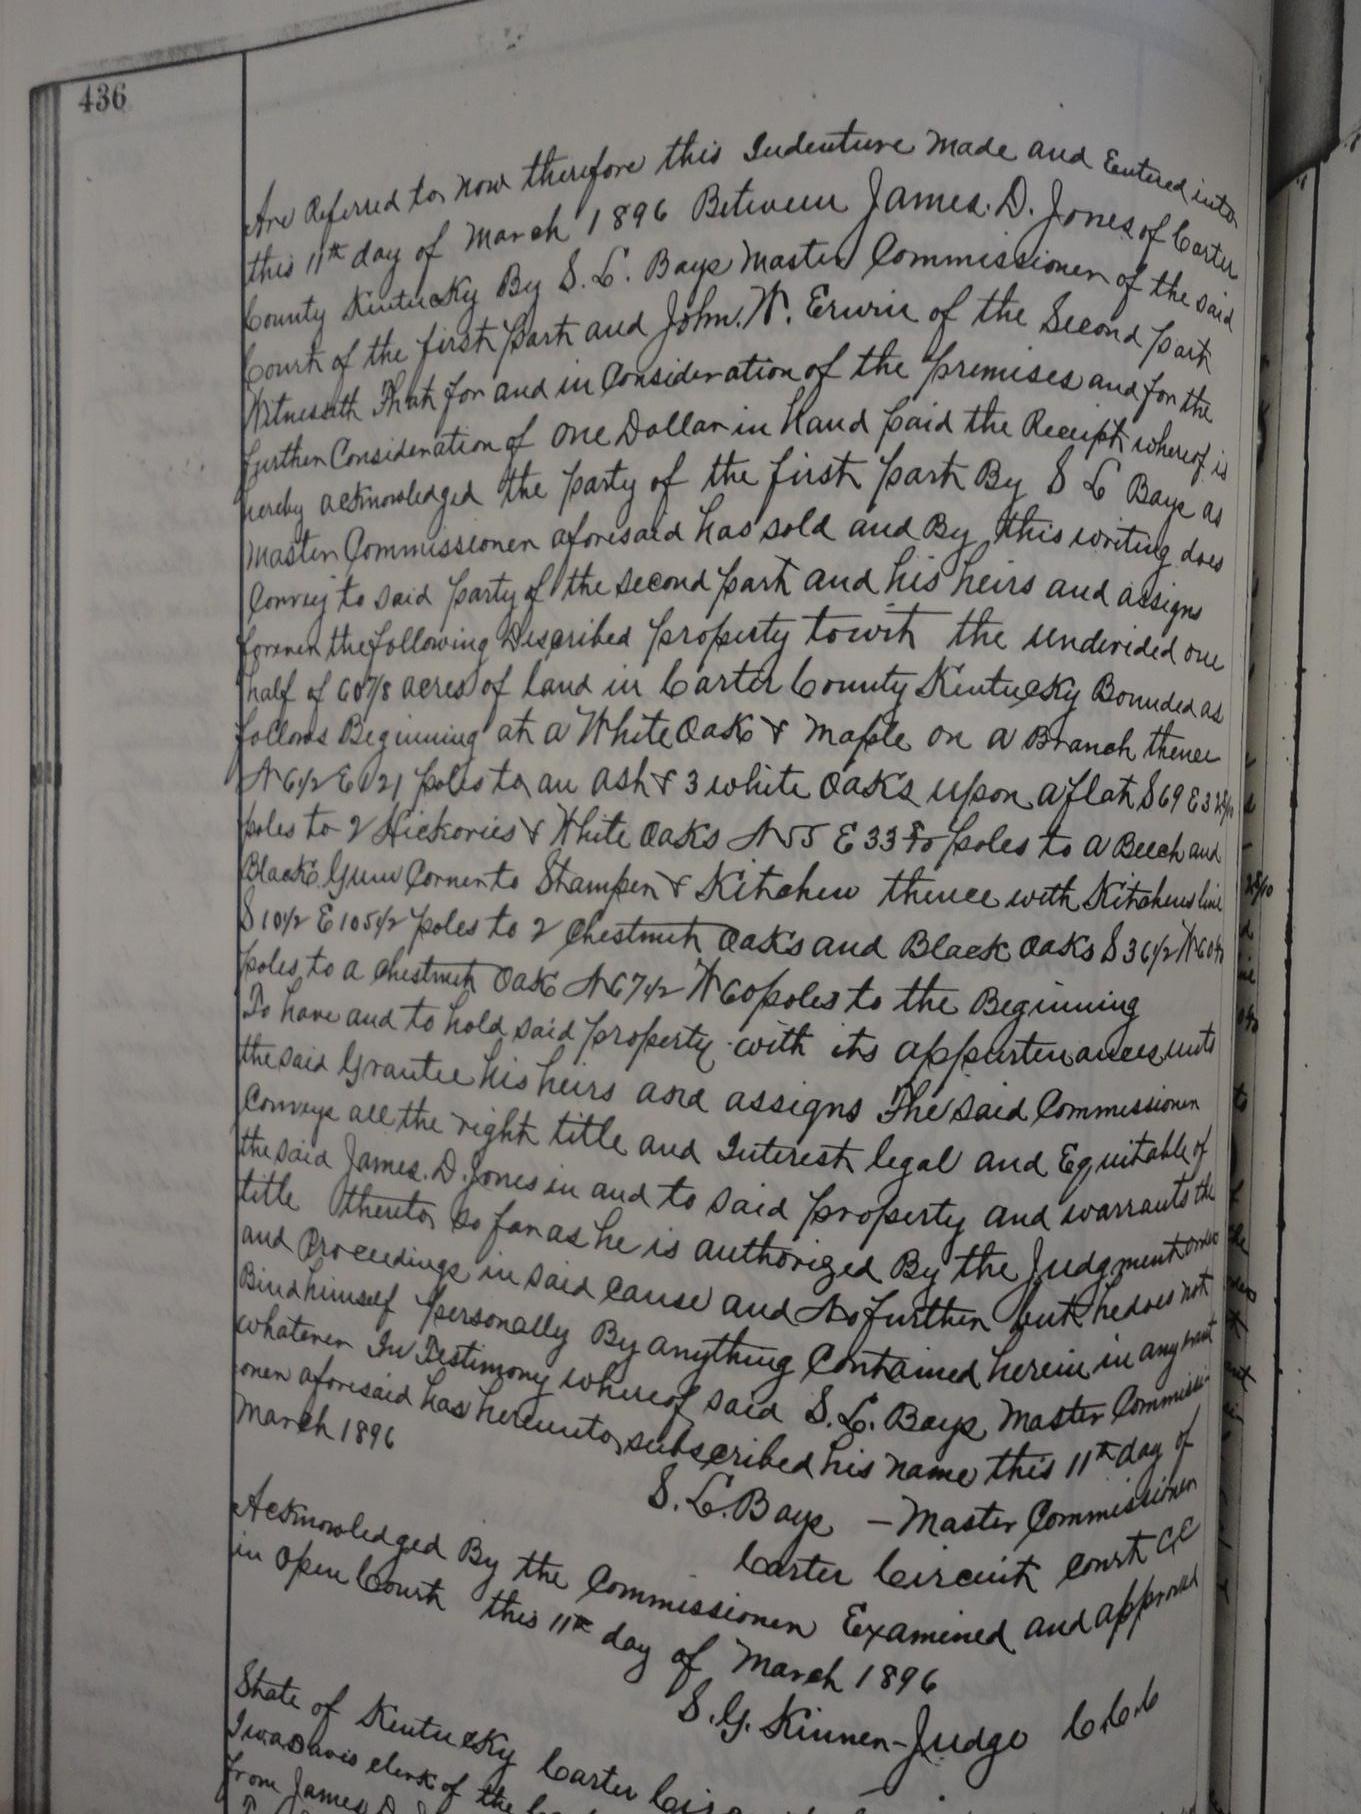 436
Are Referred to, now therefore this Indenture made and Entered into
this 11th day of March 1896 Between James. D. Jones of Carter
County Kentucky By S. L. Bays Master Commissioner of the said
Court of the first part and John. W. Erwin of the Second part
Witnesseth That for and in Consideration of the premises and for the
further Consideration of one Dollar in Hand paid the Receipt whereof is
hereby acknowledged the party of the first part By S L Bays as
Master Commissioner aforesaid has sold and By this writing does
Convey to said party of the second part and his heirs and assigns
forever the following Described property to wit the undivided one
half of 60 7/8 acres of land in Carter County Kentucky Bounded as
follows Beginning at a White Oak & Maple on a Branch thence
N 6 1/2 E 121 poles to an ash & 3 white Oaks upon a flat S 69 E
poles to 2 Hickories & White Oaks N 55 E 33 poles to a Beech and
Black Gum Corner to Stamper & Kitchen thence with Kitchens line
S 10 1/2 E 105 1/2 poles to 2 Chestnut Oaks and Black Oaks S 36 1/2 W
poles to a Chestnut Oak N 67 1/2 W 60 poles to the Beginning
To have and to hold said property with its appurtenances unto
the said Grantee his heirs and assigns The said Commissioner
Conveys all the right title and Interest legal and Equitable of
the said James. D. Jones in and to said property and warrants the
title thereto, so far as he is authorized By the Judgment orders
and Proceedings in said cause and No further but he does not
Bind himself personally By anything Contained herein in any
whatever In Testimony whereof said S. L. Bays Master Commissi-
oner aforesaid has hereunto, subscribed his name this 11th day of
March 1896
S. L. Bays - Master Commissioner
Carter Circuit Court CC
Acknowledged By the Commissioner Examined and approved
in Open Court this 11th day of March 1896
S. G. Kinner - Judge C.C.C
State of Kentucky Carter
I Davis clerk of the
from James D.